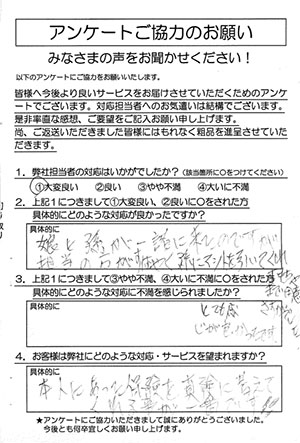 アンケートご協力のお願い
みなさまの声をお聞かせください!
以下のアンケートにご協力をお願いいたします。
皆様へ今後より良いサービスをお届けさせていただくためのアンケ
ートでございます。対応担当者へのお気遣いは結構でございます。
是非率直な感想、ご要望をご記入お願い申し上げます。
尚、ご返送いただきました皆様にはもれなく粗品を進呈させていた
だきます。
1．弊社担当者の対応はいかがでしたか？（該当箇所に○をつけてください）
①大変良い ②良い ③やや不満 ④大いに不満
2．上記1につきまして①大変良い、②良いに○をされた方
具体的にどのような対応が良かったですか？
娘と孫が一諸に来たのですが
担当の方が
3．上記1につきまして③やや不満、④大いに不満に○をされた方
具体的にどのような対応に不満を感じられましたか？
とても
4．お客様は弊社にどのような対応・サービスを望まれますか？
具体的に
本人にあった保険を真剣に考えて
★アンケートにご協力いただきまして誠にありがとうございました。
今後とも何卒宜しくお願い申し上げます。